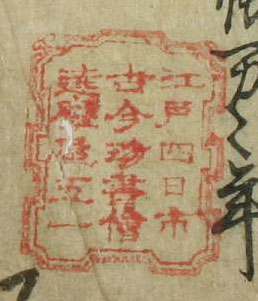 江戸四日市
古今珍書儈
達摩屋五一
年